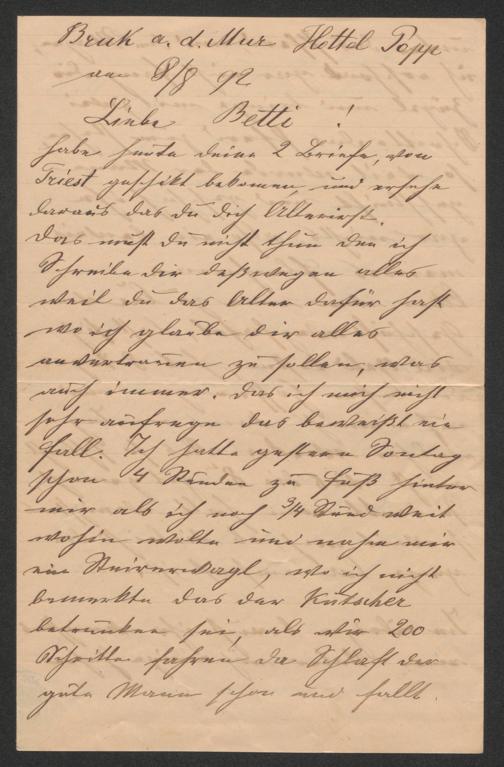 Bruk a. d. Mur Hottel Popp
am 8/8 92
Liebe Betti!
habe heute deine 2 Briefe, von
Triest geschikt bekomen, und ersehe
daraus das du dich Alterirst.
Das must du nicht thun den ich
Schreibe dir deßwegen alles
weil du das Alter dafür hast
wo ich glaube dir alles
anvertrauen zu sollen, was
auch immer. das ich mich nicht
sehr aufrege das beweißt ein
fall. Ich hatte gestern Sontag
schon 4 Stunden zu fuß hinter
mir als ich noch 3/4 Stund weit
wohin wolte und nahm mir
ein Steirerwagl, wo ich nicht
bemerkte das der Kutscher
betrunken sei, als wir 200
Schritte fahren da Schlaft der
gute Mann schon und fallt